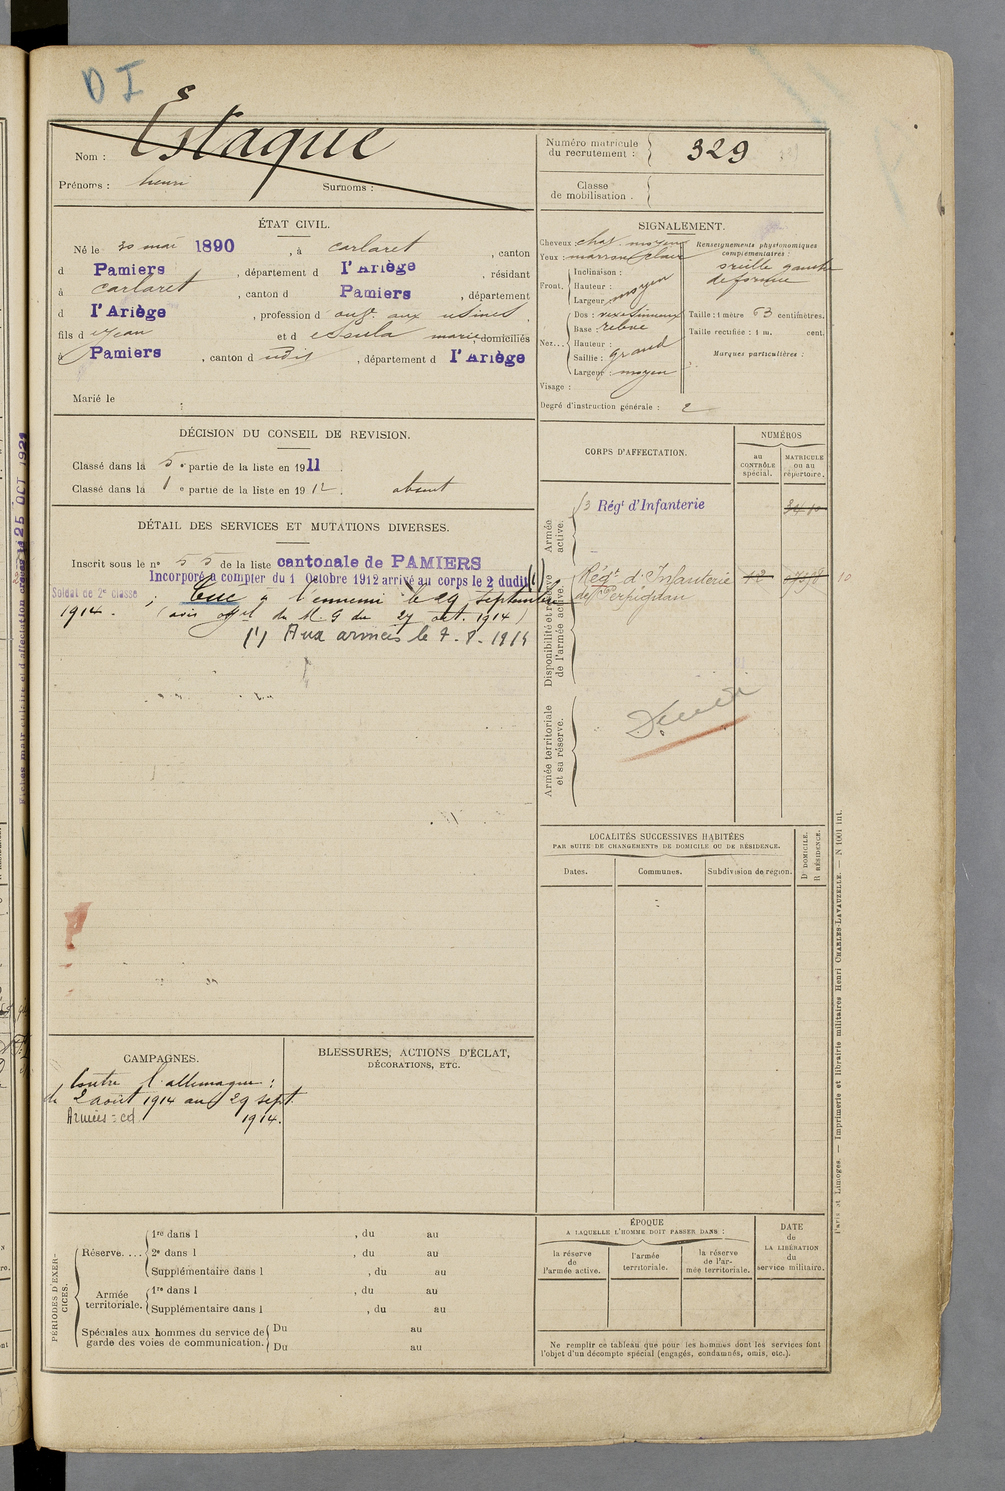 D I
Nom : Estaque
Prénoms : henri Surnoms :
Numéro matricule du recrutement : 329
Classe de mobilisation .
ÉTAT CIVIL.
Né le 30 mai 1890, à carlaret, canton
d Pamiers, département d l'Ariège, résidant
à carlaret, canton d Pamiers, département
d l'Ariège, profession d aux usines,
fils d Jean et d marie domiciliés
à Pamiers, canton d udis, département d l'Ariège
Marié le
SIGNALEMENT.
Cheveux chat moyens
Yeux : marron clair
Front. Inclinaison :
Hauteur : moyen
Largeur
Nez... Dos :
Base releve
Hauteur :
Saillie : grand
Largeur : moyen
Visage :
Degré d'instruction générale : 2
Renseignements physionomiques complémentaires :
oreille gauche
deformee
Taille : 1 mètre 63 centimètres.
Taille rectifiée : 1 m. cent.
Marques particulières :
DÉCISION DU CONSEIL DE REVISION.
Classé dans la 5e partie de la liste en 1911.
Classé dans la 1e partie de la liste en 1912. absent
DÉTAIL DES SERVICES ET MUTATIONS DIVERSES.
Inscrit sous le no 55 de la liste cantonale de PAMIERS
Incorporé à compter du 1 Octobre 1912 arrivé au corps le 2 dudit (1)
Soldat de 2e classe ; Tué à l'ennemi le 29 septembre
1914. (avis offel du M. G du 27 oct. 1914)
(1) Aux armées le 7-8-1914
CORPS D'AFFECTATION.
NUMÉROS
au CONTRÔLE spécial.
MATRICULE ou au répertoire.
Armée active.
Régt d'Infanterie
Disponibilité et réserve de l'armée active.
Régt d'Infanterie 12
de Perpignan
10
Armée territoriale et sa réserve.
LOCALITÉS SUCCESSIVES HABITÉES
PAR SUITE DE CHANGEMENTS DE DOMICILE OU DE RÉSIDENCE.
Dates. Communes. Subdivision de région.
D DOMICILE.
R RÉSIDENCE.
CAMPAGNES.
Contre l'allemagne :
du 2 août 1914 au 29 sept.
1914.
Armées : cd
BLESSURES, ACTIONS D'ÉCLAT,
DÉCORATIONS, ETC.
PÉRIODES D'EXERCICES.
Réserve. ... 1re dans l , du au
2e dans l , du au
Supplémentaire dans l , du au
Armée territoriale. 1re dans l , du au
Supplémentaire dans l , du au
Spéciales aux hommes du service de garde des voies de communication. Du au
Du au
ÉPOQUE
A LAQUELLE L'HOMME DOIT PASSER DANS :
la réserve de l'armée active.
l'armée territoriale.
la réserve de l'armée territoriale.
DATE de LA LIBÉRATION du service militaire.
Ne remplir ce tableau que pour les hommes dont les services font
l'objet d'un décompte spécial (engagés, condamnés, omis, etc.).
Paris et Limoges. — Imprimerie et librairie militaires Henri CHARLES-LAVAUZELLE. — N 1001 int.